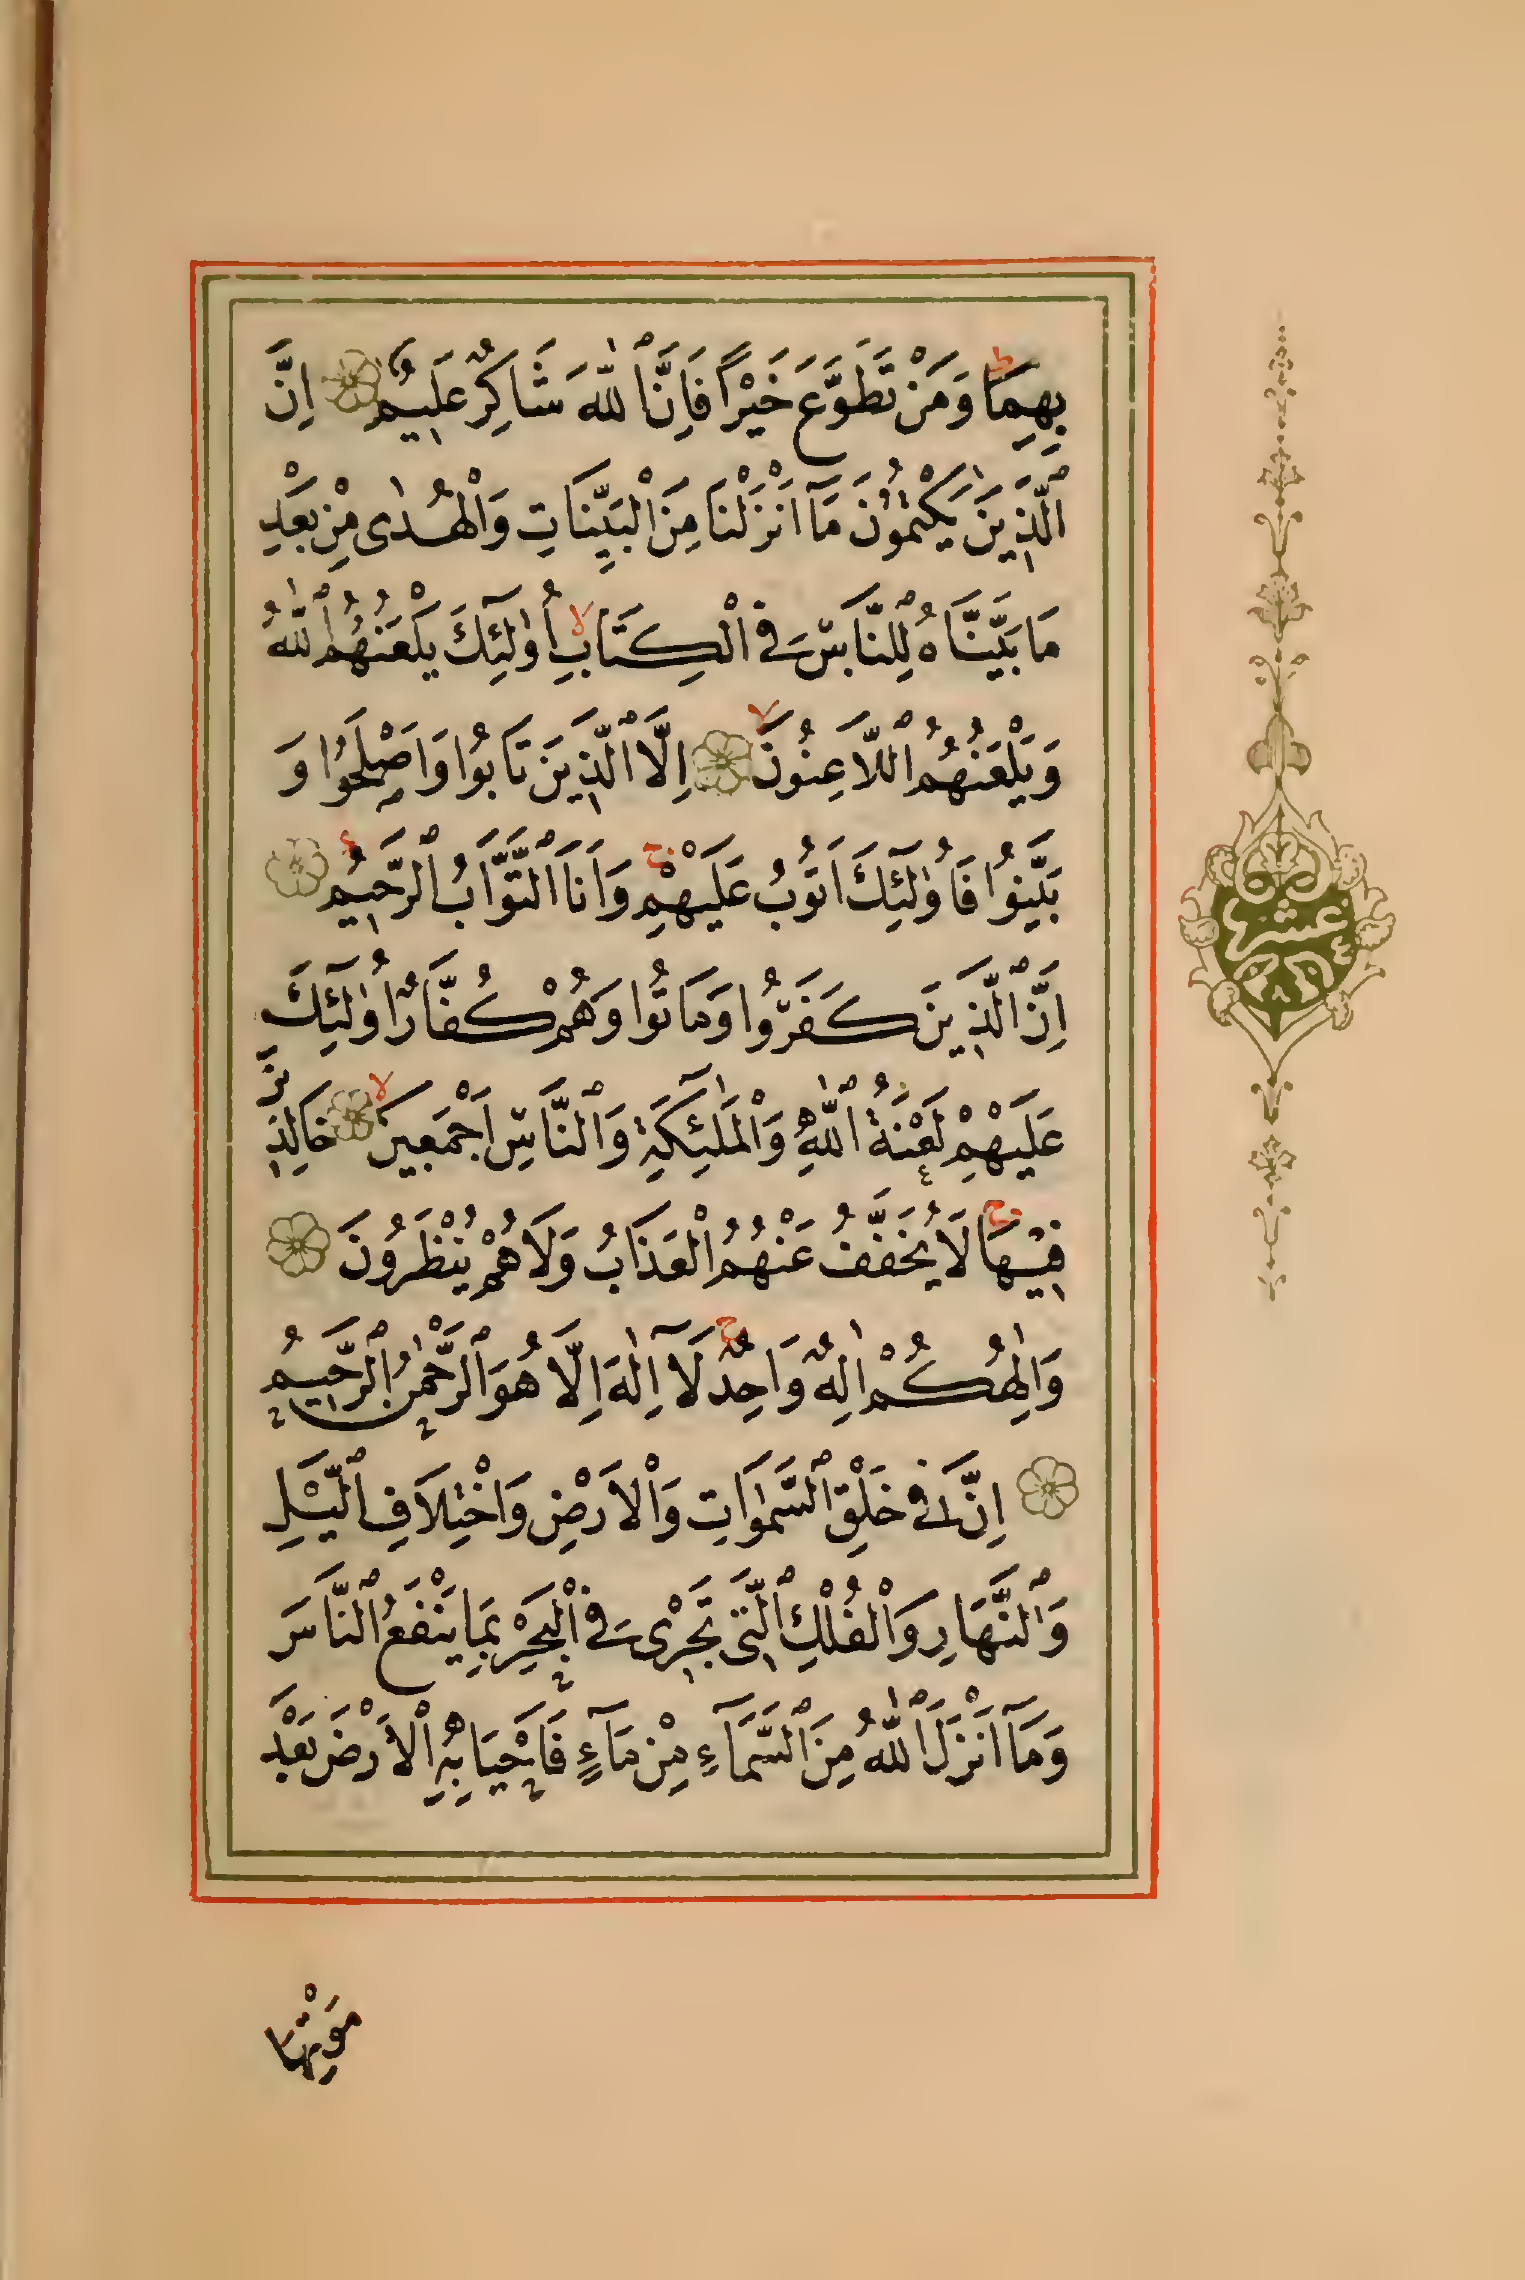 بِهِمَاۜ وَمَنْ تَطَوَّعَ خَيْرًا فَاِنَّ ٱللّٰهَ شَاكِرٌ عَلِيمٌ اِنَّ
ٱلَّذِينَ يَكْتُمُونَ مَآ اَنْزَلْنَا مِنَ ٱلْبَيِّنَاتِ وَٱلْهُدٰى مِنْ بَعْدِ
مَا بَيَّنَّاهُ لِلنَّاسِ فِى ٱلْكِتَابِۙ اُولٰٓئِكَ يَلْعَنُهُمُ ٱللّٰهُ
وَيَلْعَنُهُمُ ٱللَّاعِنُونَۙ اِلَّا ٱلَّذِينَ تَابُوا وَاَصْلَحُوا وَ
بَيَّنُوا فَاُولٰٓئِكَ اَتُوبُ عَلَيْهِمْۚ وَاَنَا ٱلتَّوَّابُ ٱلرَّحِيمُ
اِنَّ ٱلَّذِينَ كَفَرُوا وَمَاتُوا وَهُمْ كُفَّارٌ اُولٰٓئِكَ
عَلَيْهِمْ لَعْنَةُ ٱللّٰهِ وَٱلْمَلٰٓئِكَةِ وَٱلنَّاسِ اَجْمَعِينَۙ خَالِدِينَ
فِيهَاۚ لَا يُخَفَّفُ عَنْهُمُ ٱلْعَذَابُ وَلَا هُمْ يُنْظَرُونَ
وَاِلٰهُكُمْ اِلٰهٌ وَاحِدٌۚ لَآ اِلٰهَ اِلَّا هُوَ ٱلرَّحْمٰنُ ٱلرَّحِيمُ
اِنَّ فِى خَلْقِ ٱلسَّمٰوَاتِ وَٱلْاَرْضِ وَٱخْتِلَافِ ٱلَّيْلِ
وَٱلنَّهَارِ وَٱلْفُلْكِ ٱلَّتِى تَجْرِى فِى ٱلْبَحْرِ بِمَا يَنْفَعُ ٱلنَّاسَ
وَمَآ اَنْزَلَ ٱللّٰهُ مِنَ ٱلسَّمَآءِ مِنْ مَآءٍ فَاَحْيَا بِهِ ٱلْاَرْضَ بَعْدَ
مَوْتِهَا
عشر